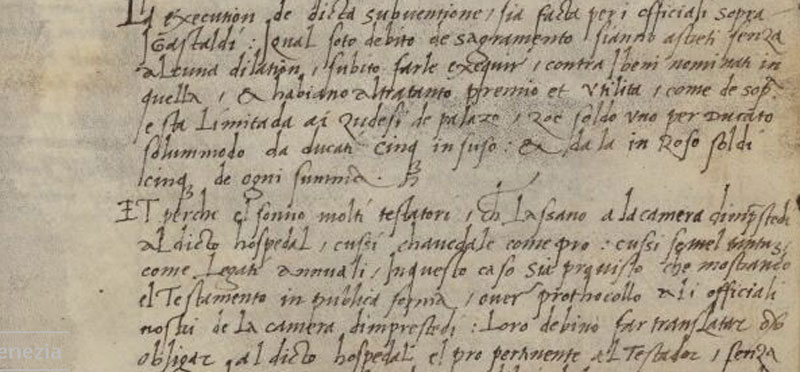 La execution de dicta subventione, sia facta per i officiali sopra
Gastaldi: Iqual soto debito de sagramento sianno astreti senza
alcuna dilation, subito farle exequir, contra i beni nominati in
quella, & habiano altratanto premio et utilita, come de sop.
e sta Limitada ai zudesi de palazo, zoe soldo uno per Ducato
solummodo da ducati cinq in suso: & da la in zoso soldi
cinq de ogni summa.
ET perche el sonno molti testatori, ch Lassano a la camera dimpstedi
al dicto hospedal, cussi chavedale come pro: cussi semel
come Legati annuali, In questo caso sia pvisto che mostrando
el Testamento in publica forma, over prothocollo a li officiali
nostri de la camera dimprestedi: Loro debino far translatar
obligar al dicto hospedal el pro pertinente al Testador, senza
enezia